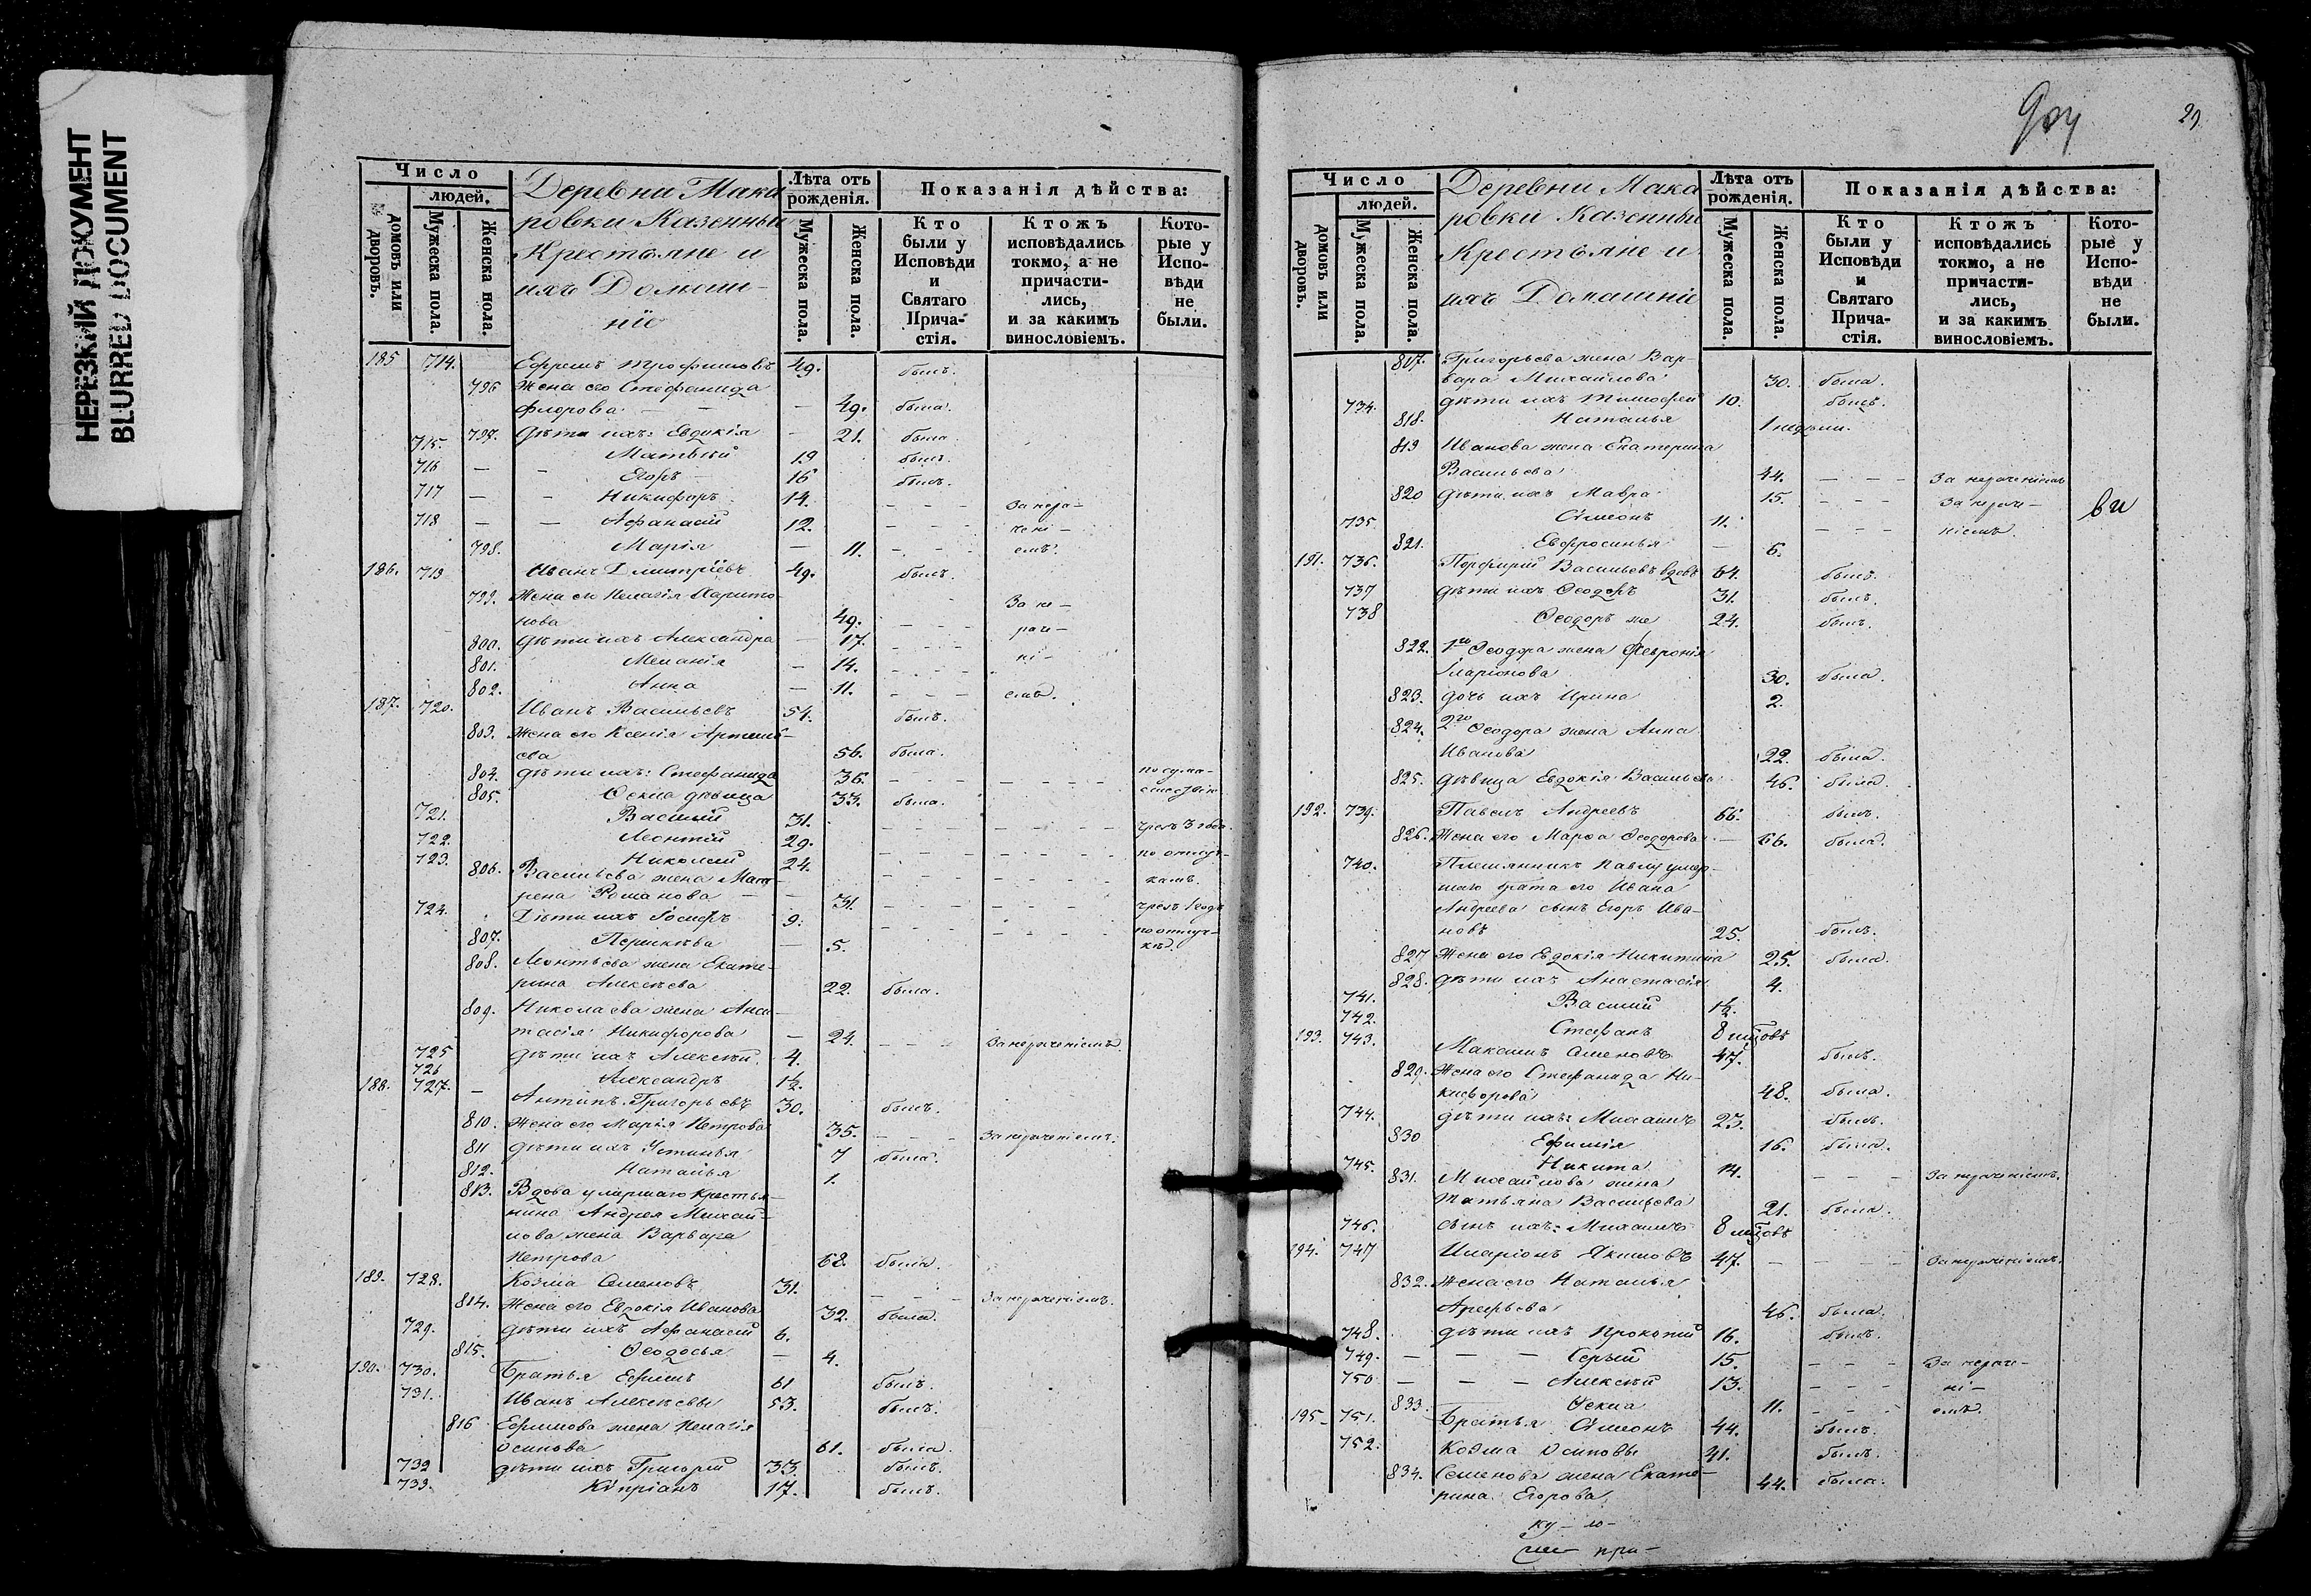 НЕРЕЗКИЙ ДОКУМЕНТ
BLURRED DOCUMENT
Число
людей.
домовъ или дворовъ.
Мужеска пола.
Женска пола.
Деревни Мака
ровки Казенныи
Крестьяне и
ихъ Домаш-
ніе
Лѣта отъ рожденія.
Мужеска пола.
Женска пола.
Показанія дѣйства:
Кто были у Исповѣди и Святаго Причастія.
Ктожъ исповѣдались токмо, а не причастились, и за какимъ винословіемъ.
Которые у Исповѣди не были.
185 714. Ефремъ Трофимовъ 49. былъ.
796 Жена его Стефанида
Флорова 49. была.
797. дѣти ихъ: Евдокія 21. была.
715. Матвѣй 19 былъ.
716 Егоръ 16 былъ.
717 Никифоръ 14. За нера-
718 Афанасій 12. чені-
798. Марія 11. емъ.
186. 719 Иванъ Дмитріевъ 49. былъ.
799. Жена его Пелагія Харито-
нова 49. За не-
800. дѣти ихъ Александра 17. раче-
801. Меланія 14. ні-
802. Анна 11. емъ.
187. 720. Иванъ Васильевъ 54. былъ.
803. Жена его Ксенія Артемь-
ева 56. была.
804. дѣти ихъ: Стефанида 36. по сума-
805. Ѳекла дѣвица 33. была. сшествію
721. Василій 31. чрезъ 3 года
722. Леонтій 29. по отлуч-
723. Николай 24. камъ.
806. Васильева жена Мат-
рена Романова 31. чрезъ 1 годъ
724. Дѣти ихъ Іосифъ 9. по отлуч-
807. Персикѣва 5. кѣ.
808. Леонтьева жена Екате-
рина Алексѣева 22. была.
809. Николаева жена Анас-
тасія Никифорова 24. За нераченіемъ.
725 дѣти ихъ Алексѣй 4.
726 Александръ 1½.
188. 727. Антипъ Григорьевъ 30. былъ.
810. Жена его Марія Петрова 35. За нераченіемъ.
811 дѣти ихъ Устинья 7 была.
812. Наталья 1.
813. Вдова умершаго крестья-
нина Андрея Михай-
лова жена Варвара
Петрова 68. была.
189. 728. Козма Семеновъ 31. За нераченіемъ.
814. Жена его Евдокія Иванова 32. была.
729. дѣти ихъ Афанасій 6.
815. Ѳеодосья 4.
190. 730. Братья Ефимъ 61 былъ.
731. Иванъ Алексѣевы 53. былъ.
816 Ефимова жена Пелагія
Осипова 61. была.
732 дѣти ихъ Григорій 33. былъ.
733. Кипріанъ 17. былъ.
29
Число
людей.
домовъ или дворовъ.
Мужеска пола.
Женска пола.
Деревни Мака
ровки Казенныи
Крестьяне и
ихъ Домашніе
Лѣта отъ рожденія.
Мужеска пола.
Женска пола.
Показанія дѣйства:
Кто были у Исповѣди и Святаго Причастія.
Ктожъ исповѣдались токмо, а не причастились, и за какимъ винословіемъ.
Которые у Исповѣди не были.
817. Григорьева жена Вар-
вара Михайлова 30. была.
734. дѣти ихъ Тимофей 10. былъ.
818. Наталья 1 недѣли.
819 Иванова жена Екатерина
Васильева 44. За нераченіемъ
820 дѣти ихъ Мавра 15. За нераче-
735 Симеонъ 11. ніемъ.
821. Евфросинья 6.
191. 736. Порфирій Васильевъ вдовъ 64. былъ.
737 дѣти ихъ Ѳеодоръ 31. былъ.
738 Ѳеодоръ же 24. былъ.
822. 1го Ѳеодора жена Февронія
Иларіонова 30. была.
823. дочь ихъ Ирина 2.
824. 2го Ѳеодора жена Анна
Иванова 22. была.
825. дѣвица Евдокія Васильева 46. была.
192. 739. Павелъ Андреевъ 66. былъ.
826. Жена его Марѳа Ѳеодорова 66. была.
740. Племянникъ Павлу умер-
шаго брата его Ивана
Андреева сынъ Егоръ Ива-
новъ 25. былъ.
827 Жена его Евдокія Никитина 25. была.
828. дѣти ихъ Анастасія 4.
741. Василій 1½.
742. Стефанъ 8 мцовъ
193. 743. Максимъ Семеновъ 47. былъ.
829. Жена его Стефанида Ни-
кифорова 48. была.
744. дѣти ихъ: Михаилъ 23. былъ.
830 Ефимія 16. была.
745. Никита 14. За нераченіемъ.
831. Михайлова жена
Татьяна Васильева 21. была.
746. сынъ ихъ: Михаилъ 8 мцовъ
194. 747 Иларіонъ Якимовъ 47. За нераченіемъ.
832. Жена его Наталья
Арефьева 46. была.
748. дѣти ихъ Прокопій 16. былъ.
749. Сергѣй 15. За нераче-
750 Алексѣй 13. ні-
833. Ѳекла 11. емъ.
195. 751. Братья Симеонъ 44. былъ.
752. Козма Осиповы 41. былъ.
834. Семенова жена Екате-
рина Егорова. 44. была.